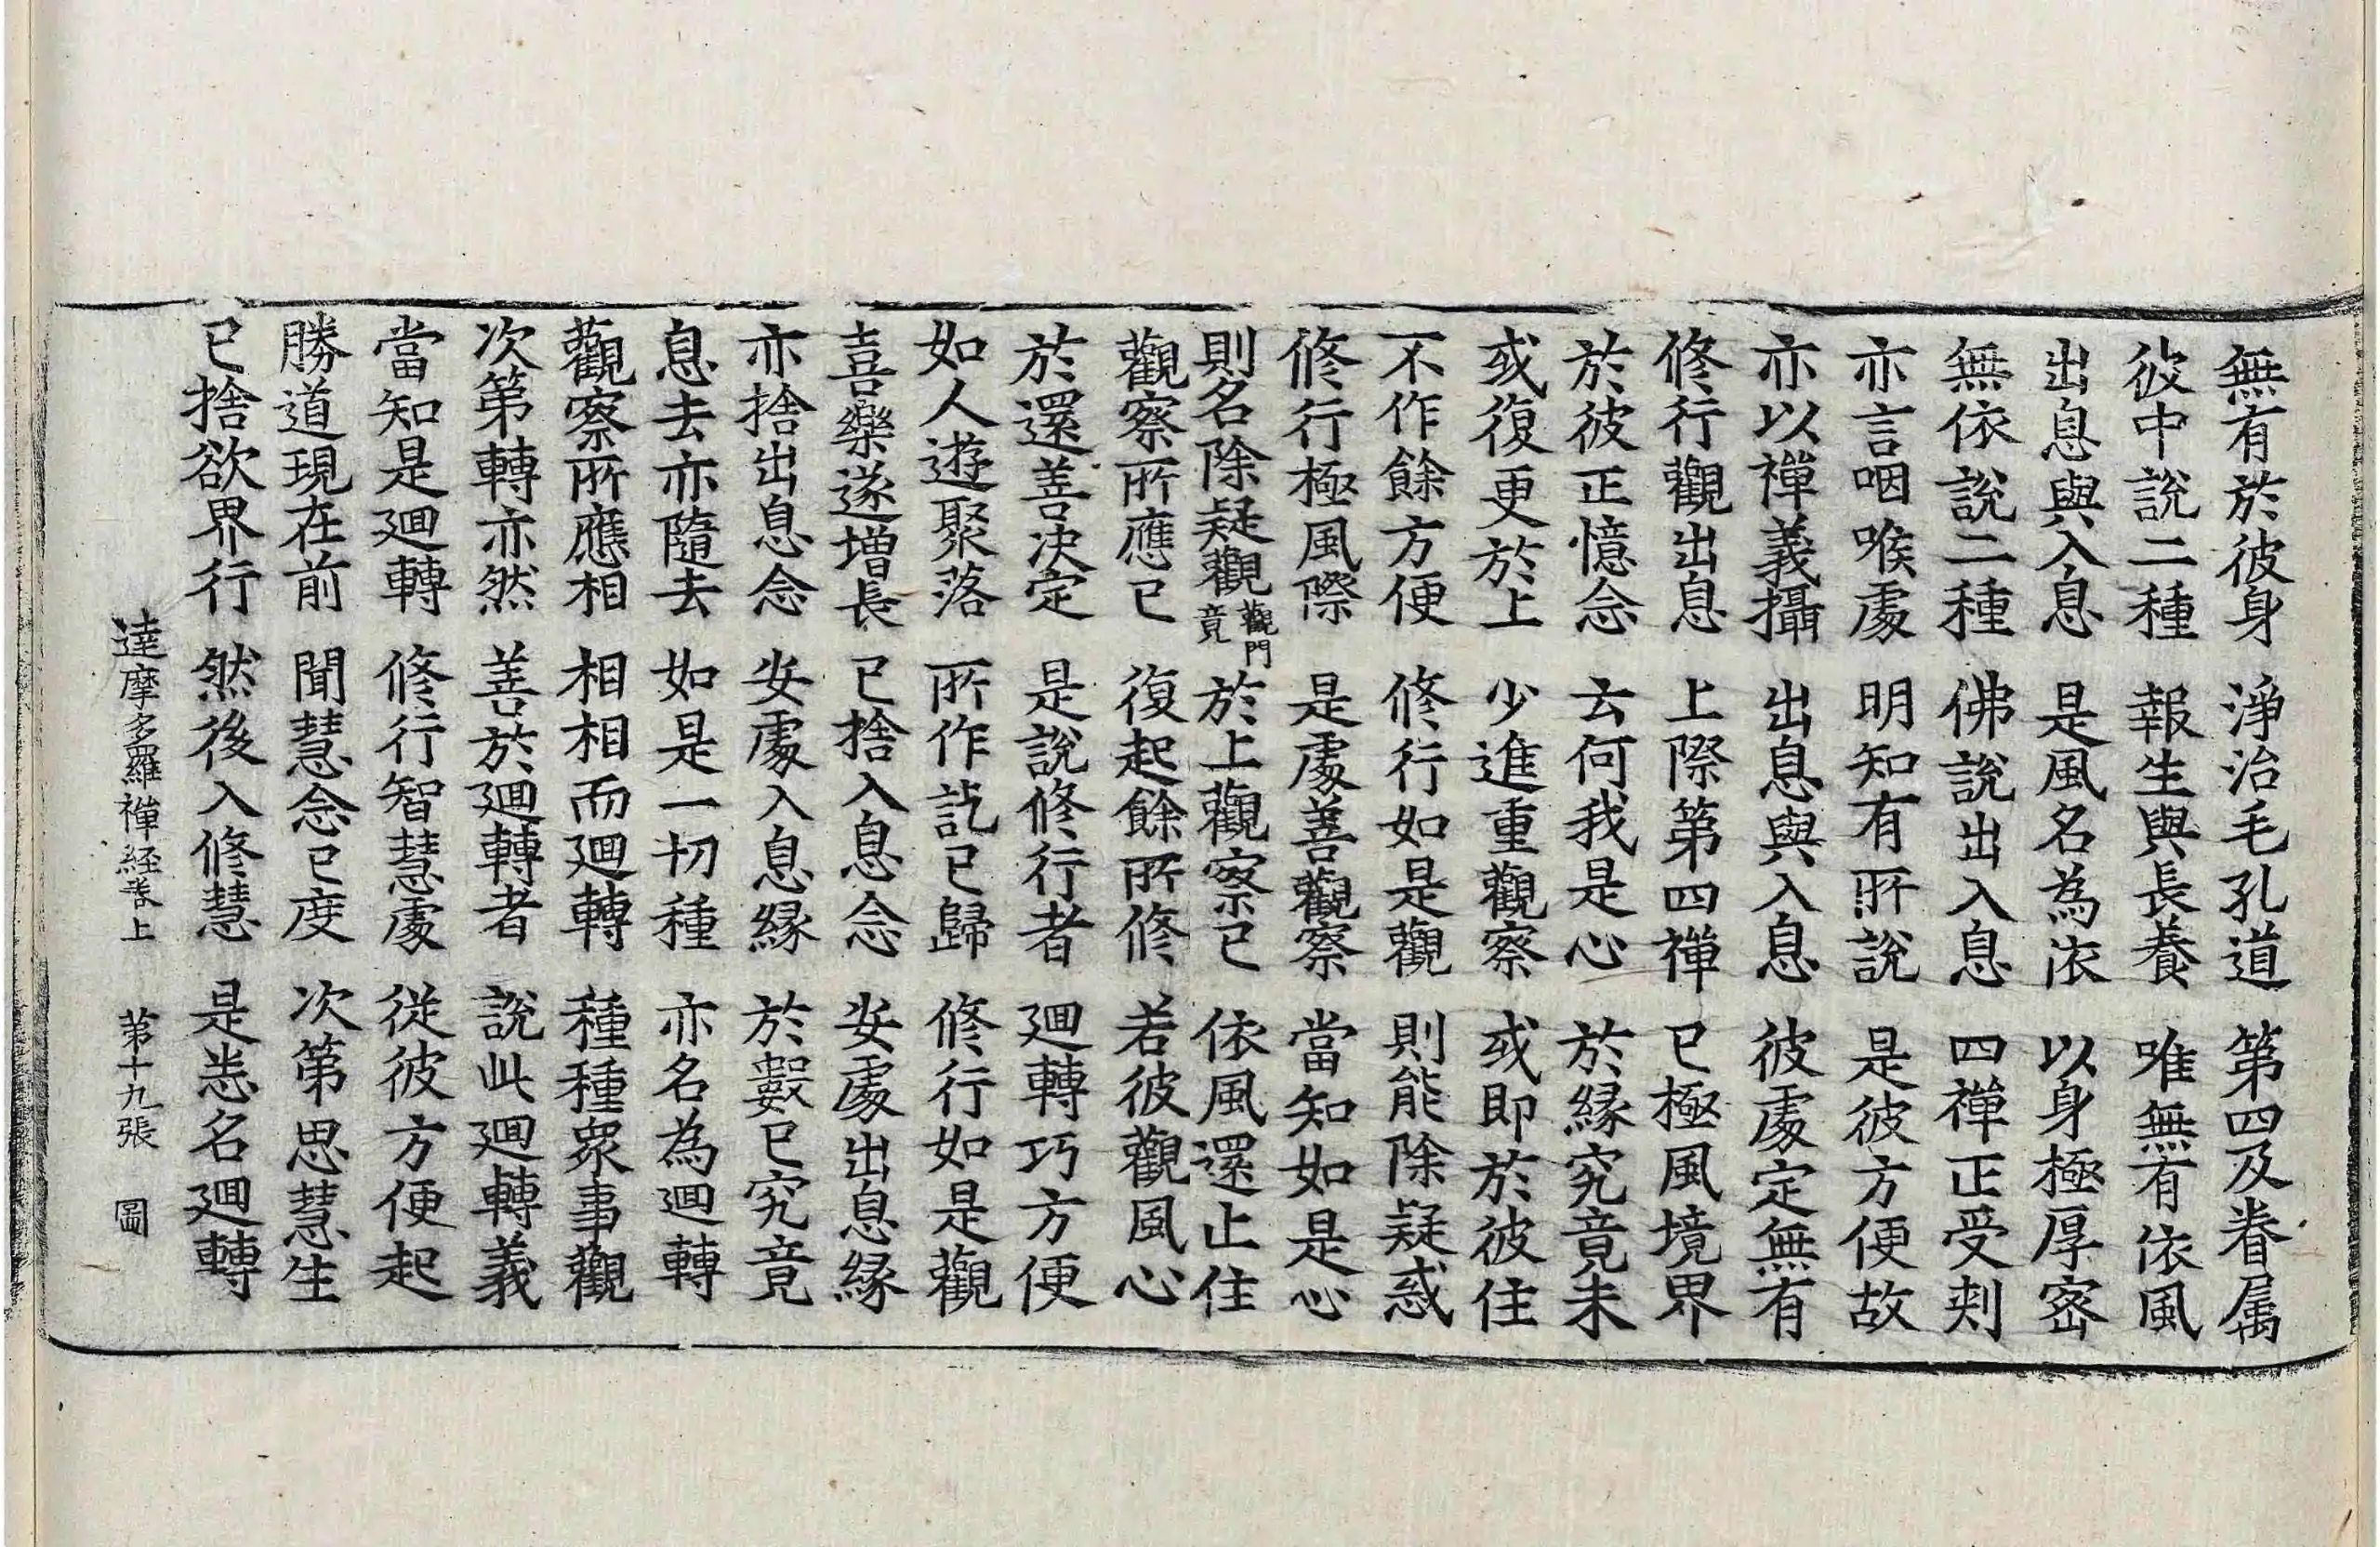 無有於彼身 淨治毛孔道 第四及眷属
彼中說二種 報生與長養 唯無有依風
出息與入息 是風名為依 以身極厚密
無依說二種 佛說出入息 四禪正受刺
亦言咽喉處 明知有所說 是彼方便故
亦以禪義攝 出息與入息 彼處定無有
修行觀出息 上際第四禪 已極風境界
於彼正憶念 云何我是心 於緣究竟未
或復更於上 少進重觀察 或即於彼住
不作餘方便 修行如是觀 則能除疑惑
修行極風際 是處善觀察 當知如是心
則名除疑觀 觀門竟 於上觀察已 依風還止住
觀察所應已 復起餘所修 若彼觀風心
於還善决定 是說修行者 迴轉巧方便
如人遊聚落 所作訖已歸 修行如是觀
喜樂遂增長 已捨入息念 安處出息緣
亦捨出息念 安處入息緣 於數已究竟
息去亦隨去 如是一切種 亦名為迴轉
觀察所應相 相相而迴轉 種種眾事觀
次第轉亦然 善於迴轉者 說此迴轉義
當知是迴轉 修行智慧處 從彼方便起
勝道現在前 聞慧念已度 次第思慧生
已捨欲界行 然後入修慧 是悉名迴轉
達摩多羅禪経卷上 第十九張 圖